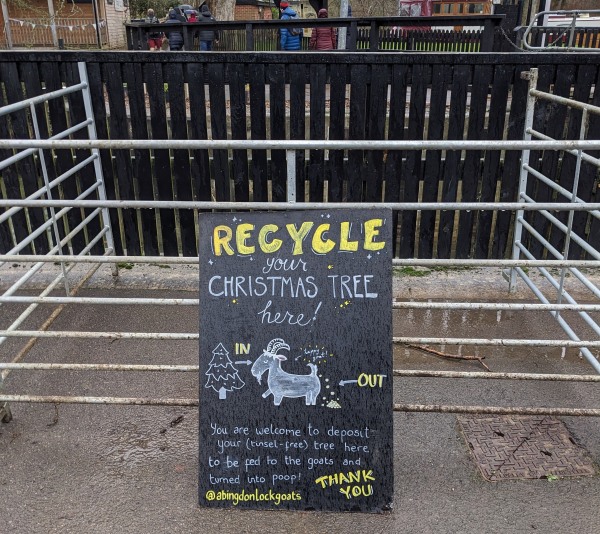 RECYCLE
your
CHRISTMAS TREE
here!
IN
OUT
You are welcome to deposit
your (tinsel-free) tree here
to be fed to the goats and
turned into poop!
THANK
YOU
@abingdonlockgoats